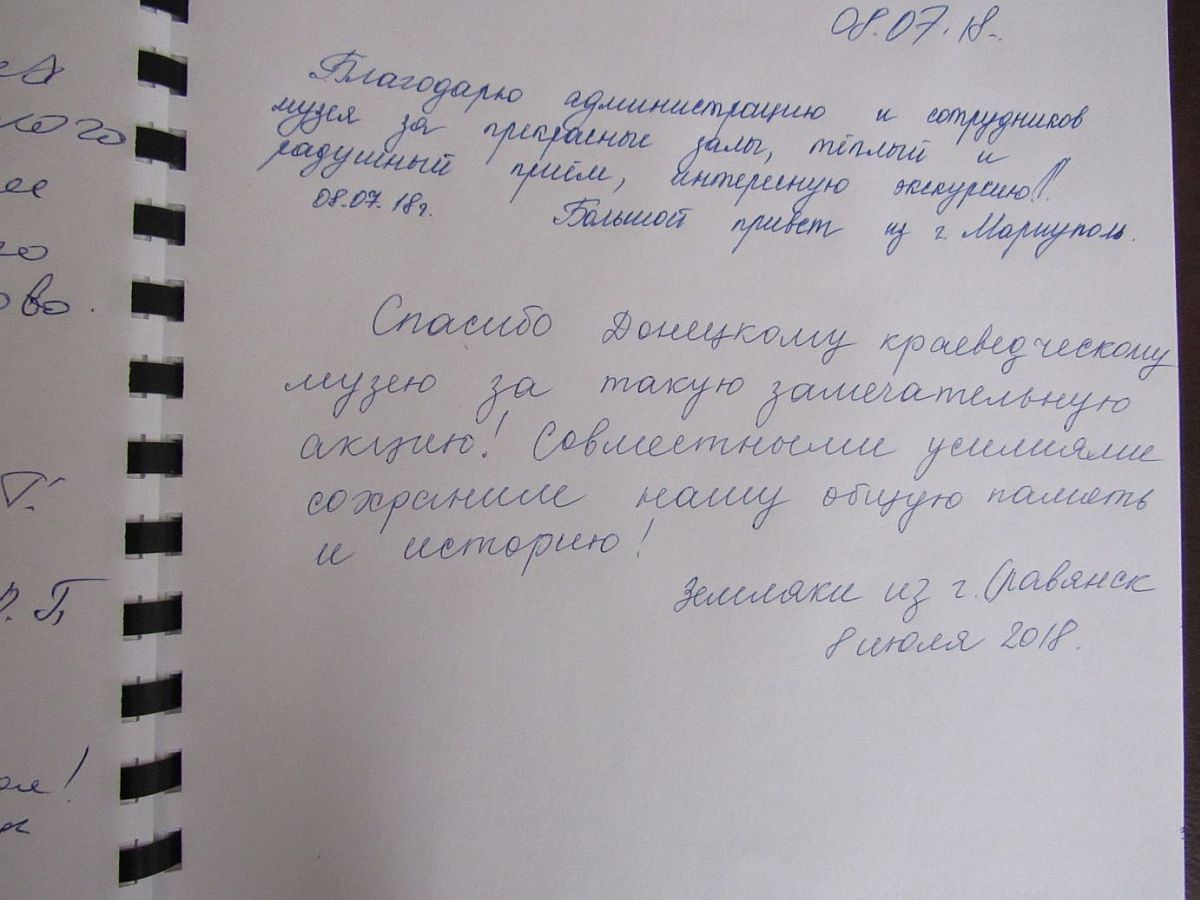 08.07.18.
Благодарю администрацию и сотрудников
музея за прекрасные залы, тёплый и
радушный приём, интересную экскурсию!!
08.07.18г. Большой привет из г. Мариуполь.
Спасибо Донецкому краеведческому
музею за такую замечательную
акцию! Совместными усилиями
сохраним нашу общую память
и историю!
Земляки из г. Славянск
8 июля 2018.